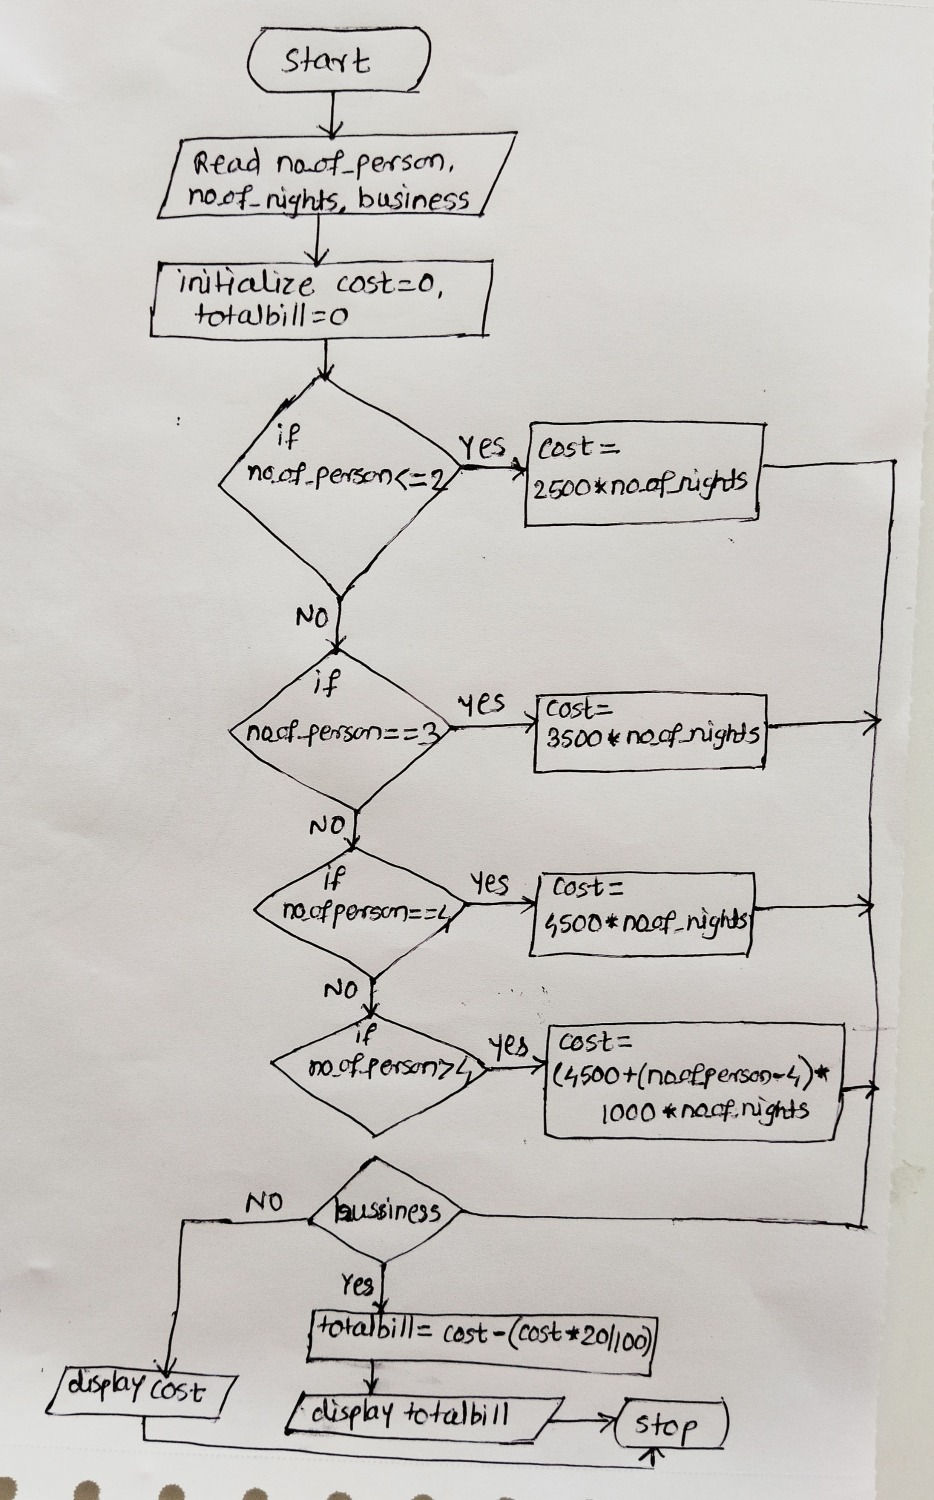 Start
Read no_of_person,
no_of_nights, business
initialize cost=0,
totalbill=0
if
no_of_person<=2
Yes
cost=
2500*no_of_nights
NO
if
no_of_person==3
yes
cost=
3500*no_of_nights
NO
if
no_ofperson==4
yes
cost=
4500*no_of_nights
NO
if
no_of_person>4
yes
cost=
(4500+(no_ofperson-4)*
1000*no_of_nights
bussiness
NO
Yes
totalbill= cost-(cost*20/100)
display cost
display totalbill
stop